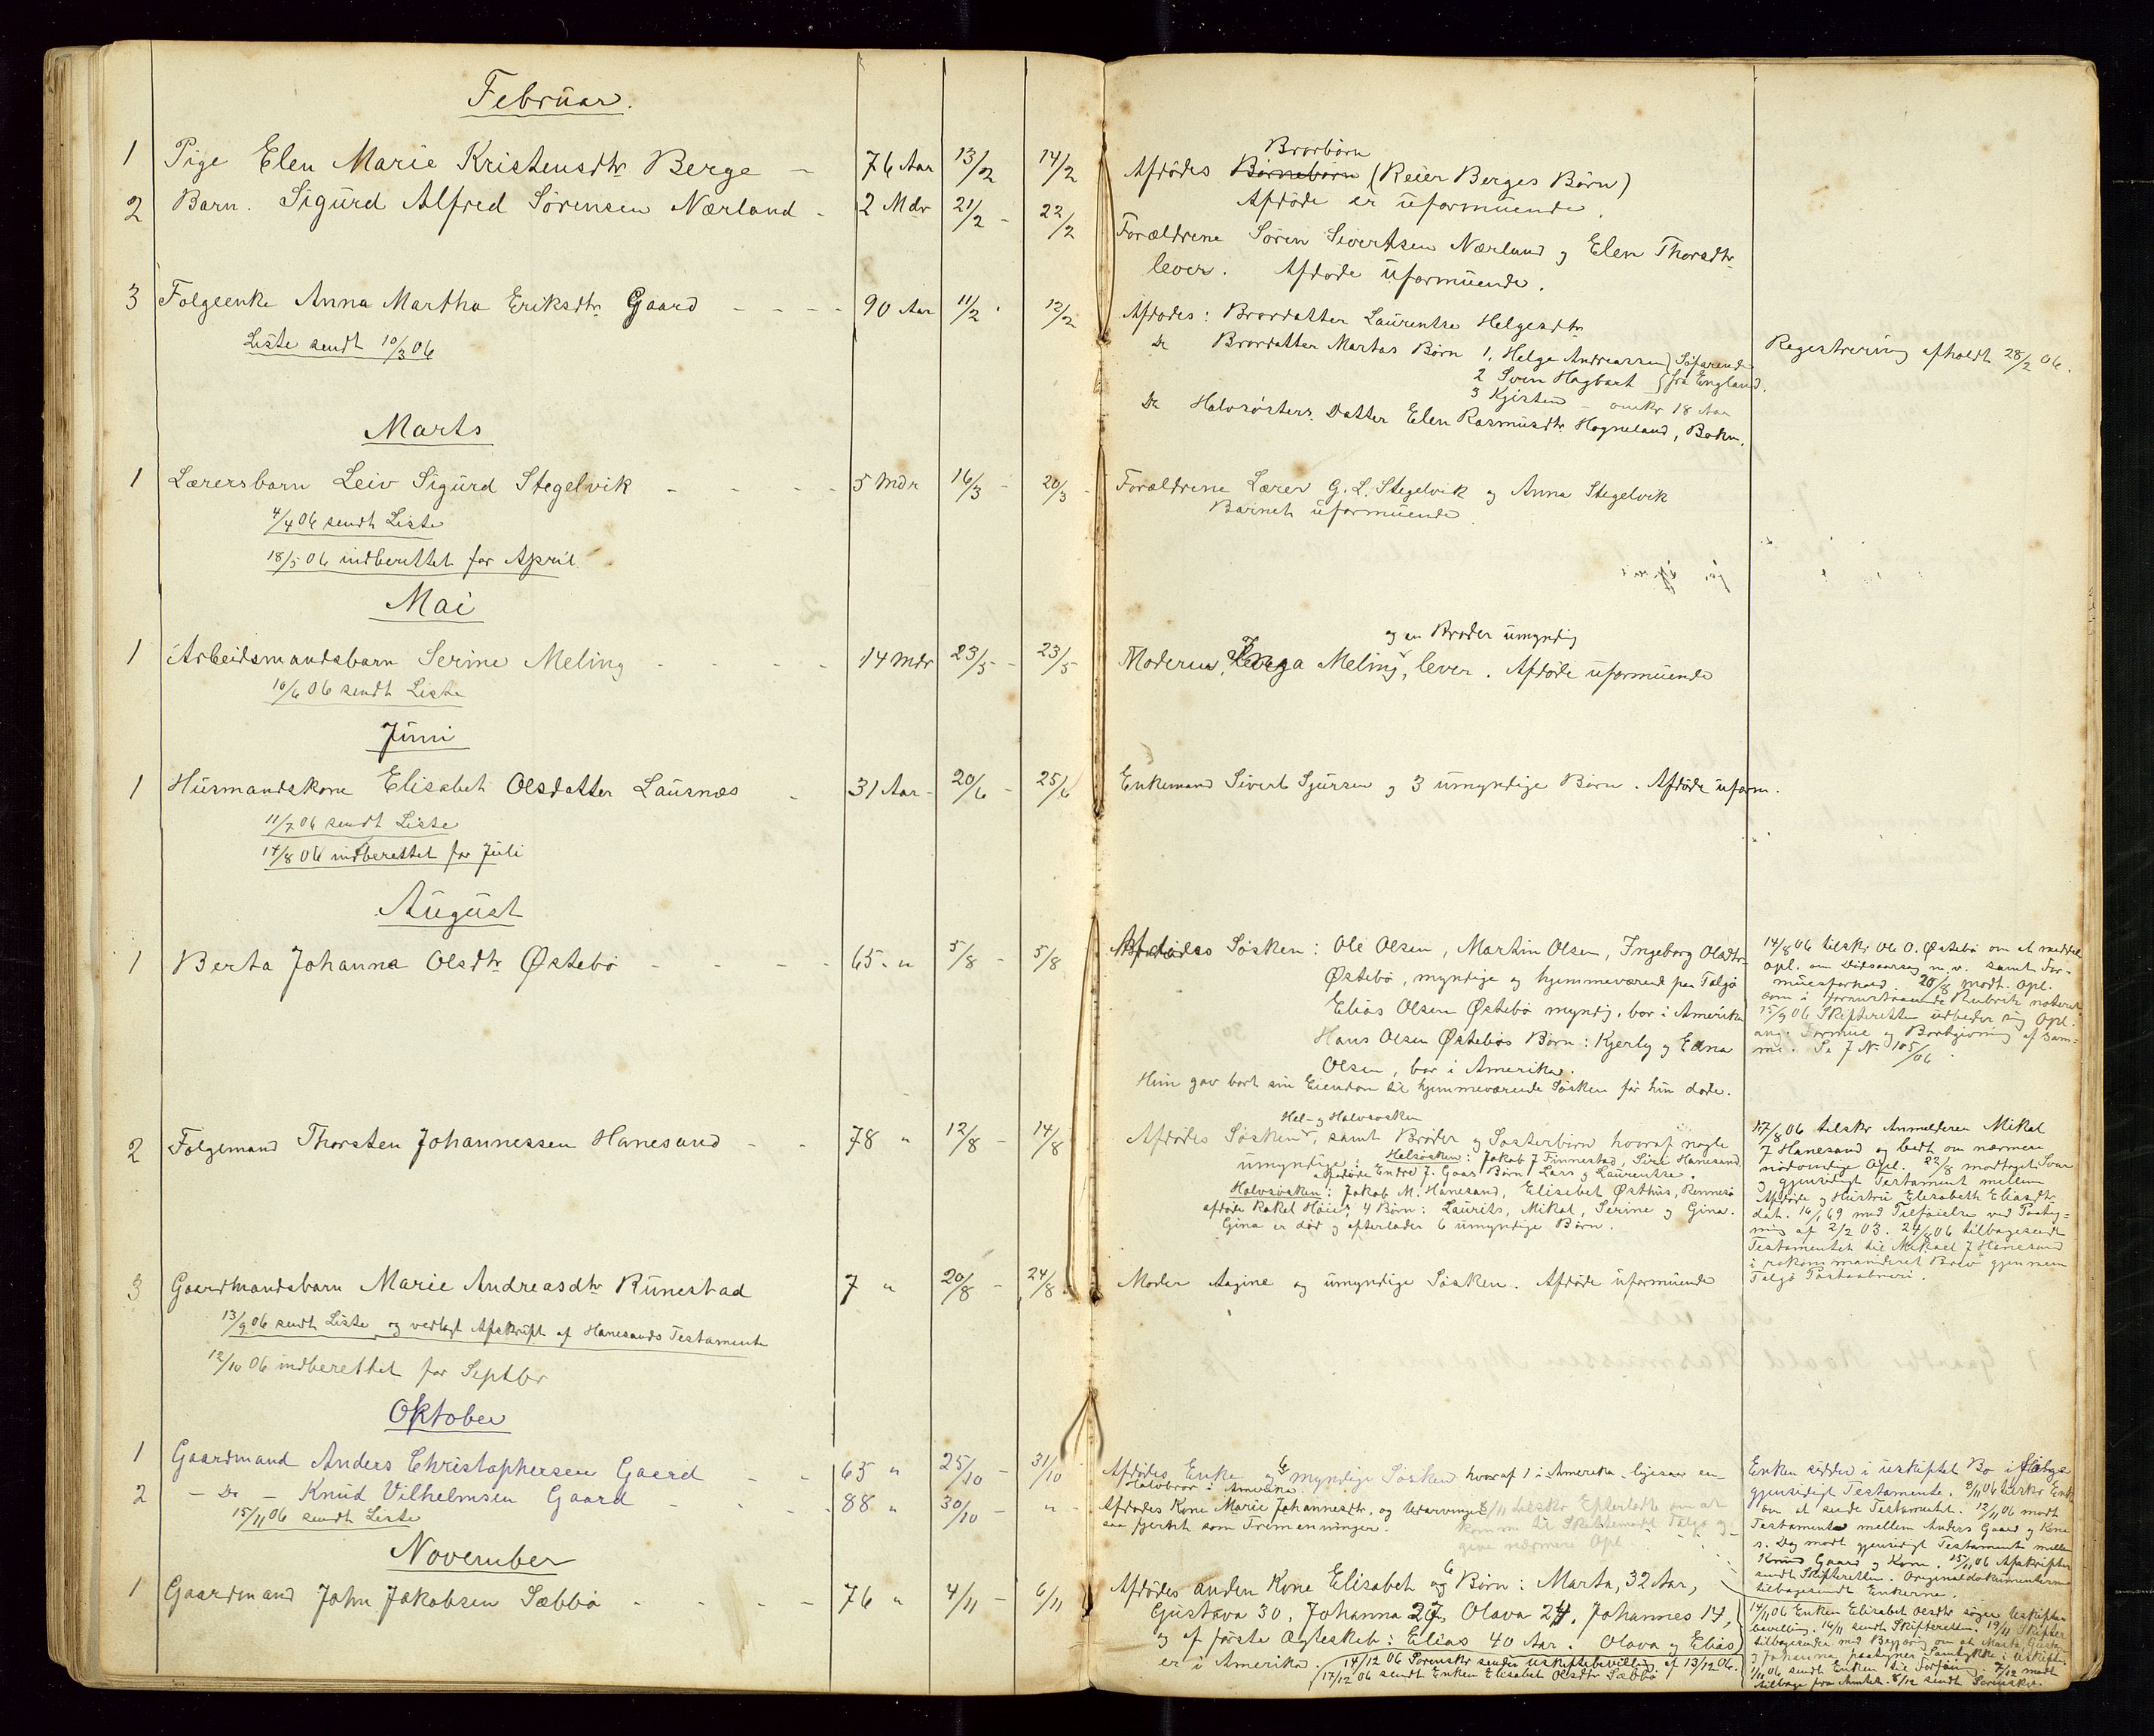 Februar.
1 Pige Elen Marie Kristensdtr Berge - 76 Aar 13/2 14/2
Brorbørn
Afdødes Børnebørn (Reier Berges Børn)
Afdøde er uformuende.
2 Barn. Sigurd Alfred Sørensen Nærland - 2 Mdr 21/2 - 22/2
Forældrene Søren Sivertsen Nærland og Elen Thorsdtr
lever. Afdøde uformuende.
3 Folgeenke Anna Martha Eriksdtr Gaard - - - - 90 Aar 11/2 12/2
Liste sendt 10/3 06
Afdødes: Brordatter Laurentse Helgesdtr
Do Brordatter Martas Børn 1, Helge Andreassen } Søfarende
2 Sven Hagbart } fra England.
3 Kjisten - omkr 18 Aar
Do Halvsøsters Datter Elen Rasmusdtr Hogneland, Bokn.
Registrering afholdt 28/2 06.
Marts
1 Lærersbarn Leiv Sigurd Stegelvik - - - - 5 Mdr 16/3 - 20/3 -
4/4 06 sendt Liste
18/5 06 indberettet for April
Forældrene Lærer G. L. Stegelvik og Anna Stegelvik
Barnet uformuende
Mai
1 Arbeidsmandsbarn Serine Meling - - - - 14 Mdr 23/5 - 23/5
10/6 06 sendt Liste
og en Broder umyndig
Moderen, Inga Meling, lever. Afdøde uformuende
Juni
1 Husmandskone Elisabet Olsdatter Lausnes - 31 Aar - 20/6 - 25/6
11/7 06 sendt Liste
14/8 06 indberettet for Juli
Enkemand Sivert Sjursen og 3 umyndige Børn. Afdøde uform.
August
1 Berta Johanna Olsdtr Østebö - - - - 65 " 5/8 - 5/8
Afdødes Søsken: Ole Olsen, Martin Olsen, Ingeborg Olsdtr
Østebö, myndige og hjemmeværend paa Talgö
Elias Olsen Østebö myndig, bor i Amerika
Hans Olsen Østebös Børn: Kjerly og Edna
Olsen, bor i Amerika.
Hun gav bort sin Eiendom til hjemmeværende Søsken før hun døde.
14/8 06 tilskr Ole O. Østebö om at meddele
Opl. om Dødsaarsag m. v. samt For-
muesforhold. 20/8 modt. Opl.
som i foranstaaende Rubrik noteret
15/9 06 Skifteretten udbeder sig Opl.
ang. Formue og Bortgivning af Sam-
me. Se J N. 105/06
2 Folgemand Thorsten Johannessen Hanesand - - 78 " 12/8 - 14/8
Hel- og Halvsøsken
Afdødes Søsken, samt Brøder og Søsterbørn hvoraf nogle
umyndige: Helsøsken: Jakob J Finnestad, Siri Hanesand,
afdøde Endre J. Gaas Børn Lars og Laurentse.
Halvsøsken: Jakob M. Hanesand, Elisebet Østhus, Rennesø
afdøde Rakel Høies, 4 Børn: Laurits, Mikal, Serine og Gina.
Gina er død og efterlader 6 umyndige Børn.
17/8 06 tilskr Anmelderen Mikal
J Hanesand og bedt om nærmere
nødvendige Opl. 22/8 modtaget Svar
og gjensidigt Testament mellem
Afdøde og Hustru Elisabeth Eliasdtr
dat. 16/1 69 med Tilføielse ved Paateg-
ning af 2/2 03. 24/8 06 tilbagesendt
Testamentet til Mikael J Hanesand
i rekommanderet Brev gjennem
Talgö Postaabneri.
3 Gaardmandsbarn Marie Andreasdtr Runestad 7 " 20/8 - 24/8
13/9 06 sendt Liste og vedlagt Afskrift af Hanesands Testamente
12/10 06 indberettet for Septbr
Moder Aagine og umyndige Søsken. Afdøde uformuende
Oktober
1 Gaardmand Anders Christophersen Gaard - - 65 " 25/10 - 31/10
Afdødes Enke og 6 myndige Søsken hvoraf 1 i Amerika, ligesaa en
Halvbror i Amerika
Enken sidder i uskiftet Bo ifølge
gjensidigt Testamente. 9/11 06 tilskr Enken
om at sende Testamentet. 12/11 06 modt
Testamente mellem Anders Gaard og Kone
s. Dag modt gjensidigt Testamente mellem
Knud Gaard og Kone. 15/11 06 Afskrifter
sendt Skifteretten. Originaldokumenterne
tilbagesendt Enkerne.
2 - Do - Knud Vilhelmsen Gaard - - - 88 " 30/10 - " -
15/11 06 sendt Liste
Afdødes Kone Marie Johannesdtr, og Udarvinger
saa fjernt som Tremenninger.
tilskr Efterladte om at
komme til Skiftemøde Talgø og
give nærmere Opl.
November
1 Gaardmand John Jakobsen Sæbbö - - - - 76 " 4/11 - 6/11
Afdødes anden Kone Elisabet og 6 Børn: Marta, 32 Aar,
Gustava 30, Johanna 27, Olava 24, Johannes 14,
og af første Ægteskab: Elias 40 Aar. Olava og Elias
er i Amerika. 14/12 06 Sorenskr sender Uskiftebevilling af 13/12 06.
17/12 06 sendt Enken Elisabet Olsdtr Sæbbö
14/11 06 Enken Elisabet Olsdtr søger Uskifte-
bevilling. 16/11 sendt Skifteretten. 19/11 Skifter
tilbagesender med Begjæring om at Marta, Gustava
og Johanna paategner Samtykke i Uskifte.
06 sendt Enken til Forføining. 7/12 modt
tilbage fra Amtet. 8/12 sendt Sorenskr.